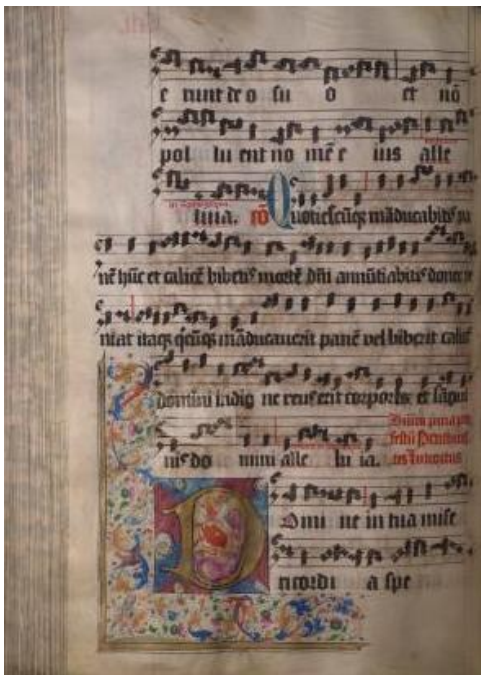 e runt de o su o et nō
pol lu ent no mē e ius alle
luia. cō Quotiescūqȝ māducabitis pa
nē hūc et calicē bibetis mortē dñi annūtiabitis donec ve
niat itaqȝ qͥcūqȝ māducauerit panē vel biberit calicē
domini indig ne reus erit corporis et sāgui
nis do mini alle lu ia.
Domi ne in tua mise
ricordi a spe